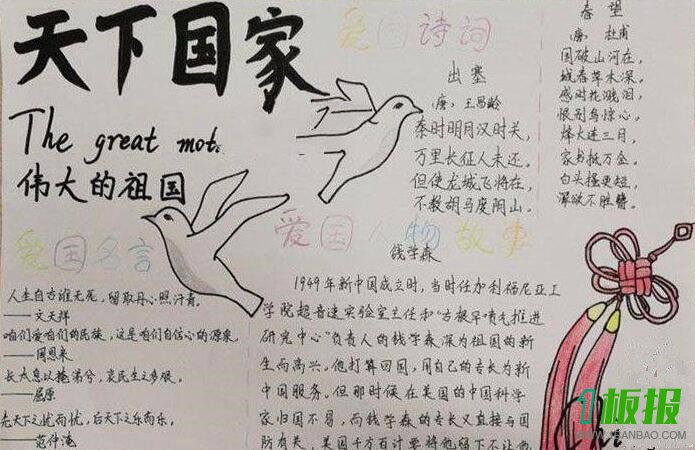 天下国家
The great mot
伟大的祖国
爱国诗词
出塞
(唐) 王昌龄
秦时明月汉时关,
万里长征人未还.
但使龙城飞将在,
不教胡马度阴山.
春望
(唐) 杜甫
国破山河在,
城春草木深.
感时花溅泪,
恨别鸟惊心.
烽火连三月,
家书抵万金.
白头搔更短,
浑欲不胜簪.
爱国名言
人生自古谁无死,留取丹心照汗青.
——文天祥
咱们爱咱们的民族,这是咱们自信心的源泉.
——周恩来
长太息以掩涕兮,哀民生之多艰.
——屈原
先天下之忧而忧,后天下之乐而乐,
——范仲淹
爱国人物故事
钱学森
1949年新中国成立时,当时任加利福尼亚工
学院超音速实验室主任和"古根罕喷气推进
研究中心"负责人的钱学森深为祖国的新
生而高兴。他打算回国,用自己的专长为新
中国服务。但那时候在美国的中国科学
家归国不易,而钱学森的专长又直接与国
防有关,美国千方百计要将他留下不让他
板报
WWW.1BANBAO.COM